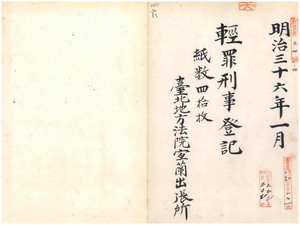 明治三十六年一月
輕罪刑事登記
紙数四拾枚
臺北地方法院宜蘭出張所